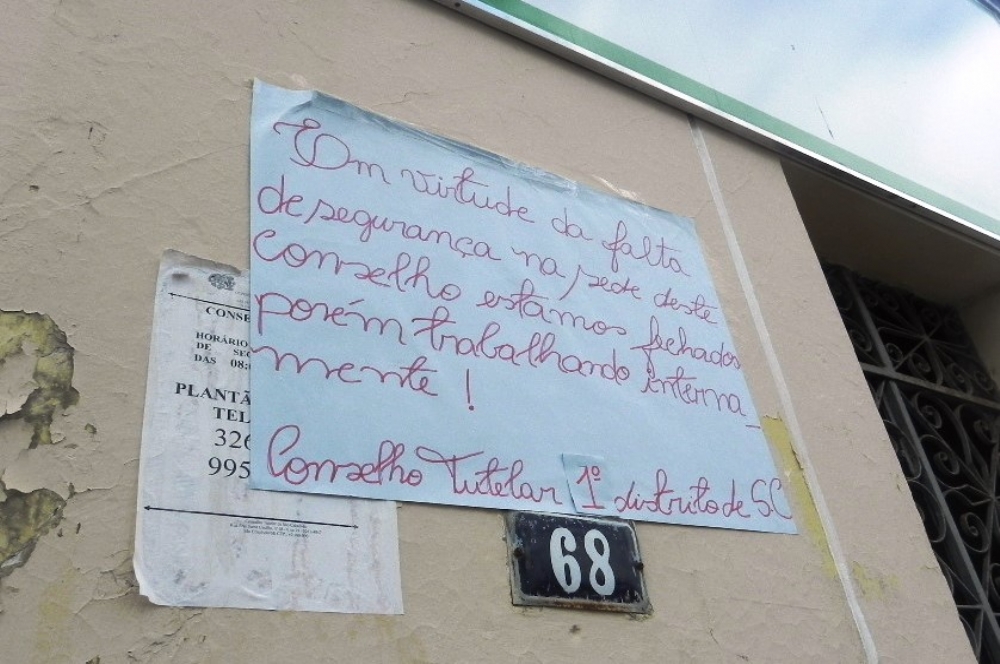 Em virtude da falta
de segurança na sede deste
Conselho estamos fechados
porém trabalhando interna_
mente !
Conselho Tutelar 1º distrito de SG
CONSE
HORÁRIO
DE SEG
DAS 08:
PLANTÃ
TEL
326
995
68